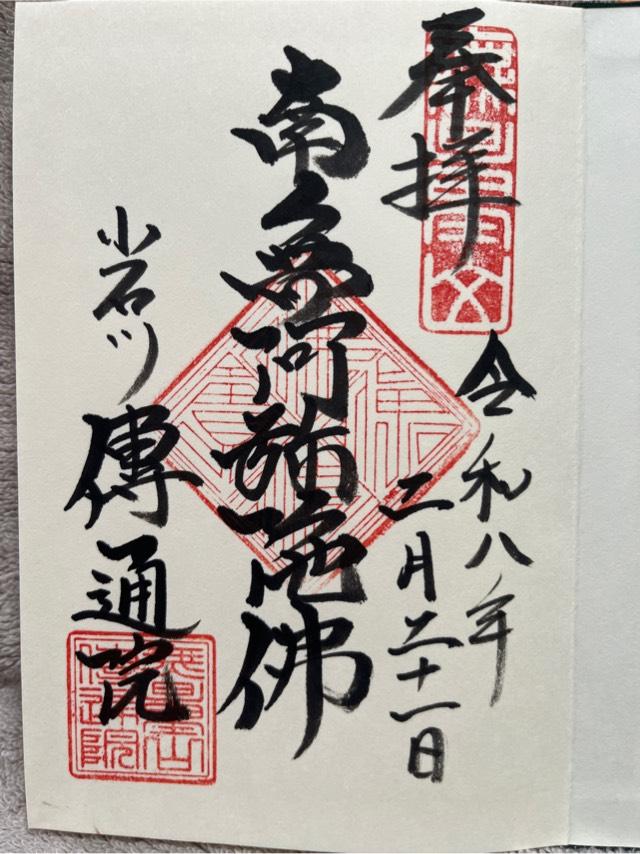 奉拝
令和八年
二月二十一日
南無阿弥陀佛
小石川
傳通院